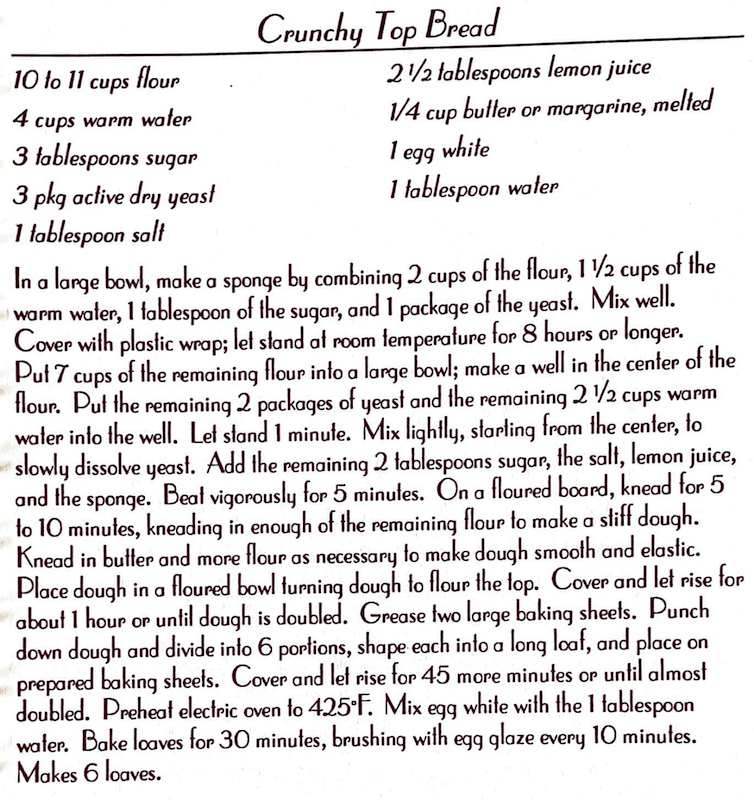 Crunchy Top Bread
10 to 11 cups flour
4 cups warm water
3 tablespoons sugar
3 pkg active dry yeast
1 tablespoon salt
2 1/2 tablespoons lemon juice
1/4 cup butter or margarine, melted
1 egg white
1 tablespoon water
In a large bowl, make a sponge by combining 2 cups of the flour, 1 1/2 cups of the
warm water, 1 tablespoon of the sugar, and 1 package of the yeast. Mix well.
Cover with plastic wrap; let stand at room temperature for 8 hours or longer.
Put 7 cups of the remaining flour into a large bowl; make a well in the center of the
flour. Put the remaining 2 packages of yeast and the remaining 2 1/2 cups warm
water into the well. Let stand 1 minute. Mix lightly, starting from the center, to
slowly dissolve yeast. Add the remaining 2 tablespoons sugar, the salt, lemon juice,
and the sponge. Beat vigorously for 5 minutes. On a floured board, knead for 5
to 10 minutes, kneading in enough of the remaining flour to make a stiff dough.
Knead in butter and more flour as necessary to make dough smooth and elastic.
Place dough in a floured bowl turning dough to flour the top. Cover and let rise for
about 1 hour or until dough is doubled. Grease two large baking sheets. Punch
down dough and divide into 6 portions, shape each into a long loaf, and place on
prepared baking sheets. Cover and let rise for 45 more minutes or until almost
doubled. Preheat electric oven to 425°F. Mix egg white with the 1 tablespoon
water. Bake loaves for 30 minutes, brushing with egg glaze every 10 minutes.
Makes 6 loaves.